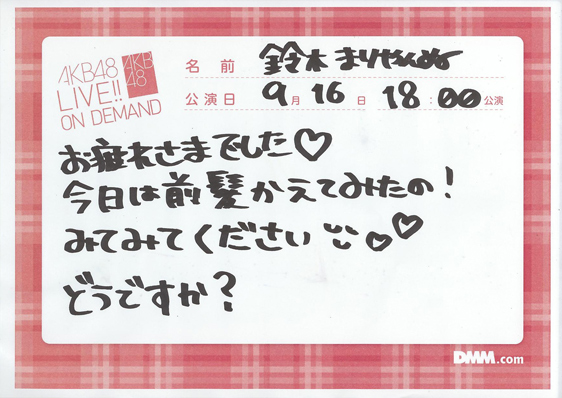 AKB48
LIVE!!
ON DEMAND
AKB
48
名前 鈴木まりやんぬ
公演日 9月16日 18:00公演
お疲れさまでした♡
今日は前髪かえてみたの!
みてみてください ♡♡
どうですか?
DMM.com